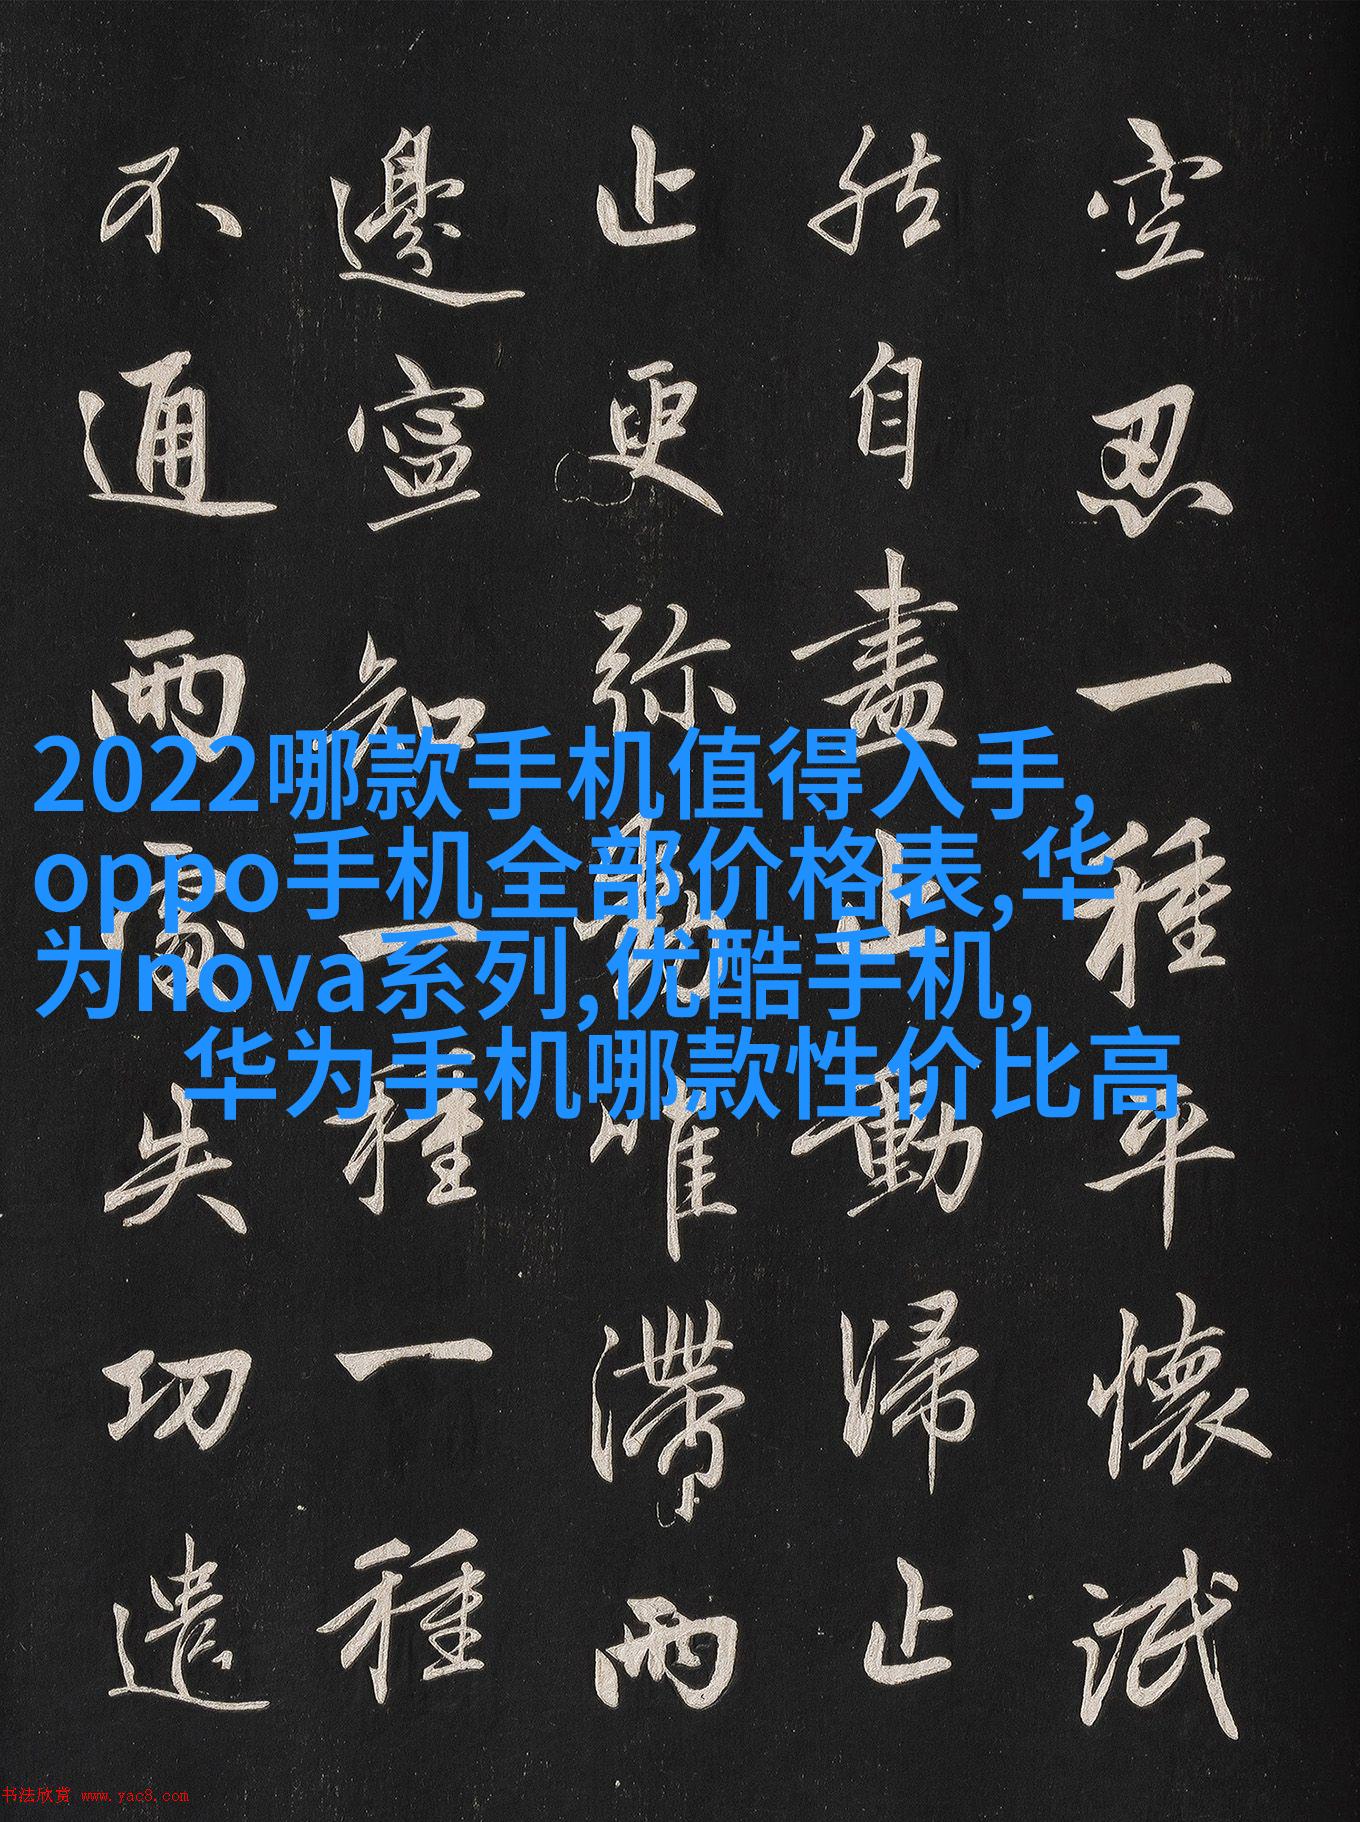 空忍一種平懷泯
然自盡止動歸止
止更弥動唯滯兩
邊寧知一種一種
不通兩處失功遣
2022哪款手机值得入手,
oppo手机全部价格表,华
为nova系列,优酷手机,
华为手机哪款性价比高
书法欣赏 www.yac8.com